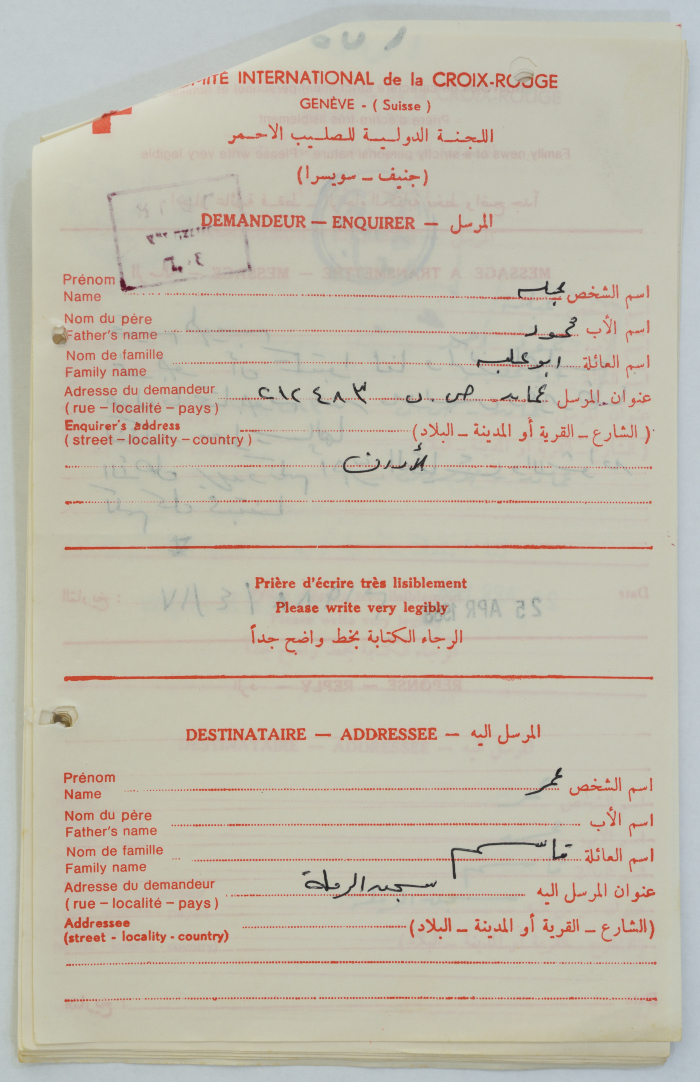 MITÉ INTERNATIONAL de la CROIX-ROUGE
GENÈVE - ( Suisse )
اللجنة الدولية للصليب الاحمر
(جنيف – سويسرا)
DEMANDEUR – ENQUIRER – المرسل
Prénom
Name اسم الشخص
Nom du père
Father's name اسم الأب محمود
Nom de famille
Family name اسم العائلة ابو علبه
Adresse du demandeur
( rue – localité – pays ) عنوان المرسل ص.ب ٢١٢٤٨٣
Enquirer's address
( street – locality – country ) ( الشارع – القرية أو المدينة – البلاد)
الأردن
Prière d'écrire très lisiblement
Please write very legibly
الرجاء الكتابة بخط واضح جداً
25 APR
DESTINATAIRE – ADDRESSEE – المرسل اليه
Prénom
Name اسم الشخص عمر
Nom du père
Father's name اسم الأب
Nom de famille
Family name اسم العائلة قاسم
Adresse du demandeur
( rue – localité – pays ) عنوان المرسل اليه سجن الرملة
Addressee
(street - locality - country) (الشارع – القرية أو المدينة – البلاد)